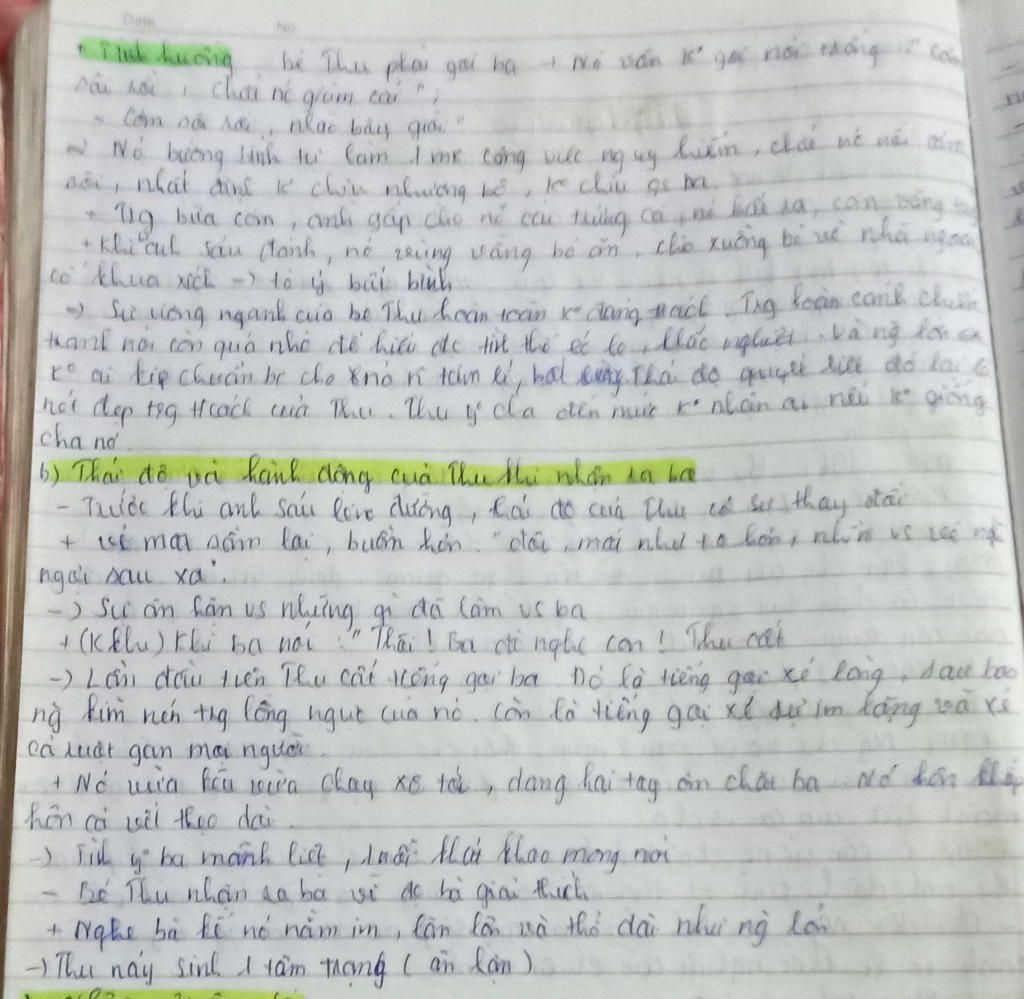 Date No
+ Tình huống bé Thu phải gọi ba → Nó vẫn k° gọi nói trống : " Cơm
sôi rồi, chắt nc giùm cái";
- Cơm sôi rồi, nhão bây giờ."
→ Nó loay hoay tự làm 1 mk công việc nguy hiểm, chắt nc nồi cơm
sôi, nhất định k° chịu nhượng bộ, k° chịu gọi ba.
+ Trg bữa cơm, anh gắp cho nó cái trứng cá, nó hất ra, cơm văng
+ Khi anh Sáu đánh, nó vùng vằng bỏ ăn, chèo xuồng bỏ về nhà ngoại
cố khua xích → tỏ ý bất bình.
→ Sự ương ngạnh của bé Thu hoàn toàn k° đáng trách. Trg hoàn cảnh chiến
tranh nó còn quá nhỏ để hiểu đc tình thế éo le, khắc nghiệt và ng lớn
k° ai kịp chuẩn bị cho Thái độ quyết liệt đó lại là
nét đẹp trg t/cách của Thu. Thu y' cha đến mức k° nhận ai nếu k° giống
cha nó.
b) Thái độ và hành động của Thu khi nhận ra ba
- Trước khi anh Sáu lên đường, thái độ của Thu có sự thay đổi
+ vẻ mặt sầm lại, buồn hơn : "đôi mắt như to hơn, nhìn vs vẻ
ngơi sâu xa".
→ Sự ân hận vs những gì đã làm vs ba
+ Khi ba nói : " Thôi! Ba đi nghe con! Thu cất
→ Lần đầu tiên Thu cất tiếng gọi ba. Đó là tiếng gọi xé lòng, sau bao
ng kìm nén trg lồng ngực của nó. Còn là tiếng gọi xé sự im lặng và xé
cả ruột gan mọi người.
+ Nó vừa kêu vừa chạy xô tới, dang hai tay ôm chặt ba. Nó hôn khắp
hôn cả vết thẹo dài.
→ Tình y' ba mãnh liệt, khát khao mong mỏi
- Bé Thu nhận ra ba vì đc bà giải thích.
+ Nghe bà kể nó nằm im, lăn lộn và thở dài như ng lớn
→ Thu nảy sinh 1 tâm trạng ( ân hận )